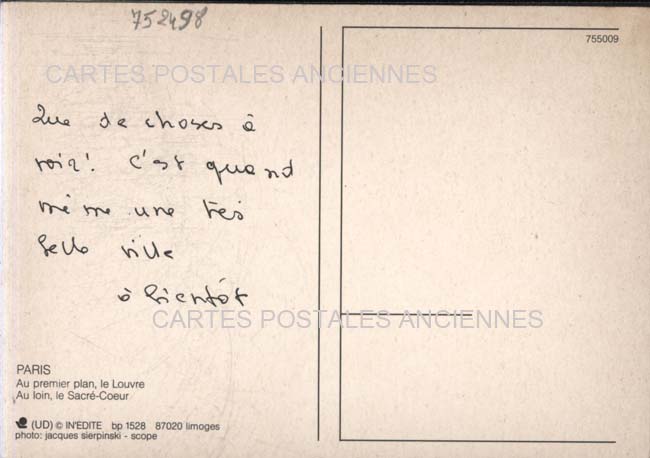 752498
755009
CARTES POSTALES ANCIENNES
Que de choses à
voir! C'est quand
même une très
belle ville
à bientôt
CARTES POSTALES ANCIENNES
PARIS
Au premier plan, le Louvre
Au loin, le Sacré-Coeur
(UD) © IN'EDITE bp 1528 87020 limoges
photo: jacques sierpinski - scope